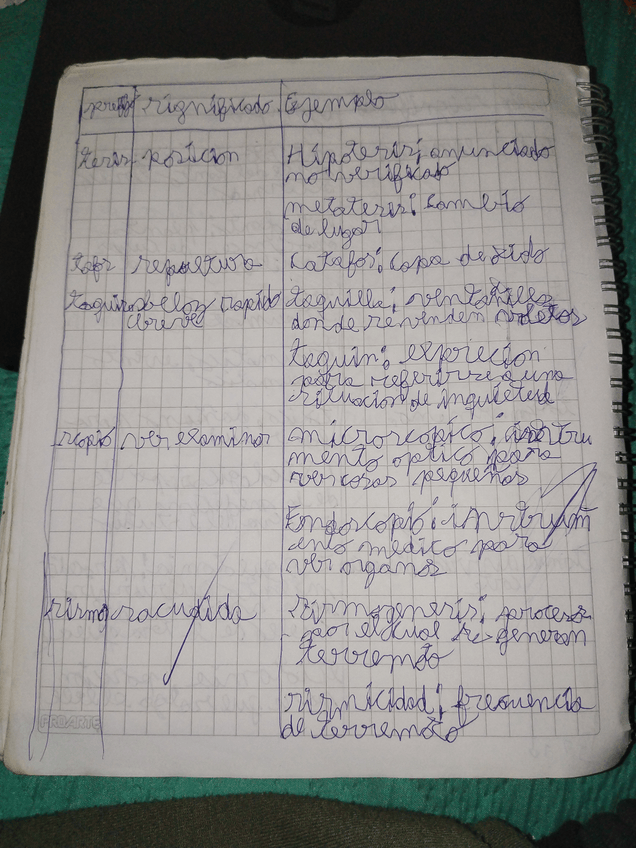 prefijo significado Ejemplo
tesis posicion Hipotesis; anunciado
no verificado
metatesis: Cambio
de lugar
tafs sepultura Catafos: Capa de
taquin veloz rapido taquilla; ventanilla
breve donde se venden voletos
taquin: exprecion
para referirse a una
situacion de inquietud
scopio ver examinar microscopico: instru
mento optico para
ver cosas pequeñas
Endoscopio: instrum
ento medico para
ver organos
sismo sacudida Sismogenesis; proceso
por el cual se generan
terremoto
sismicidad; frecuencia
de terremoto
PROARTE